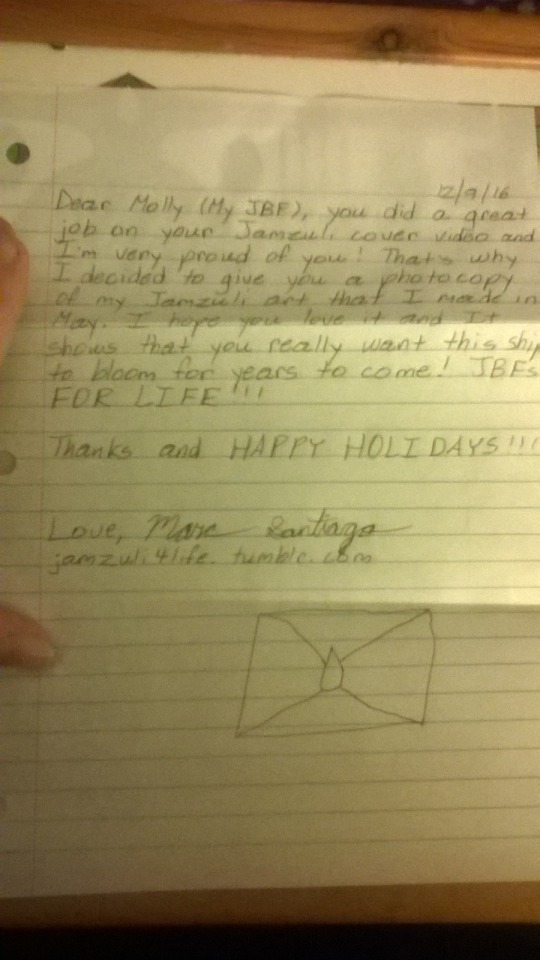 12/9/16
Dear Molly (My JBF), you did a great
job on your Jamzuli cover video and
I'm very proud of you! That's why
I decided to give you a photocopy
of my Jamzuli art that I made in
May. I hope you love it and It
shows that you really want this ship
to bloom for years to come! JBFs
FOR LIFE!!!
Thanks and HAPPY HOLIDAYS!!!
Love, Marc Santiago
jamzuli4life.tumblr.com